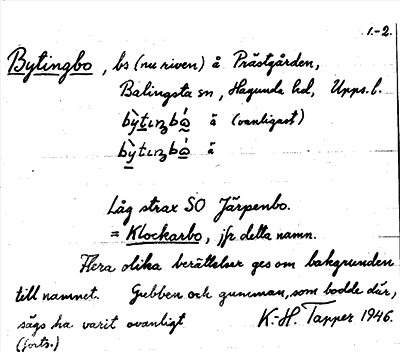 1.-2.
Bytingbo, bs (nu riven) å Prästgården,
Balingsta sn, Hagunda hd, Upps. l.
bỳtɩŋbó̱ ä (vanligast)
bỳ̱tɩŋbó̱ ä
Låg strax SO Järpenbo.
= Klockarbo, jfr detta namn.
Flera olika berättelser ges om bakgrunden
till namnet. Gubben och gumman, som bodde där,
sägs ha varit ovanligt K.-H. Tapper 1946.
(forts.)